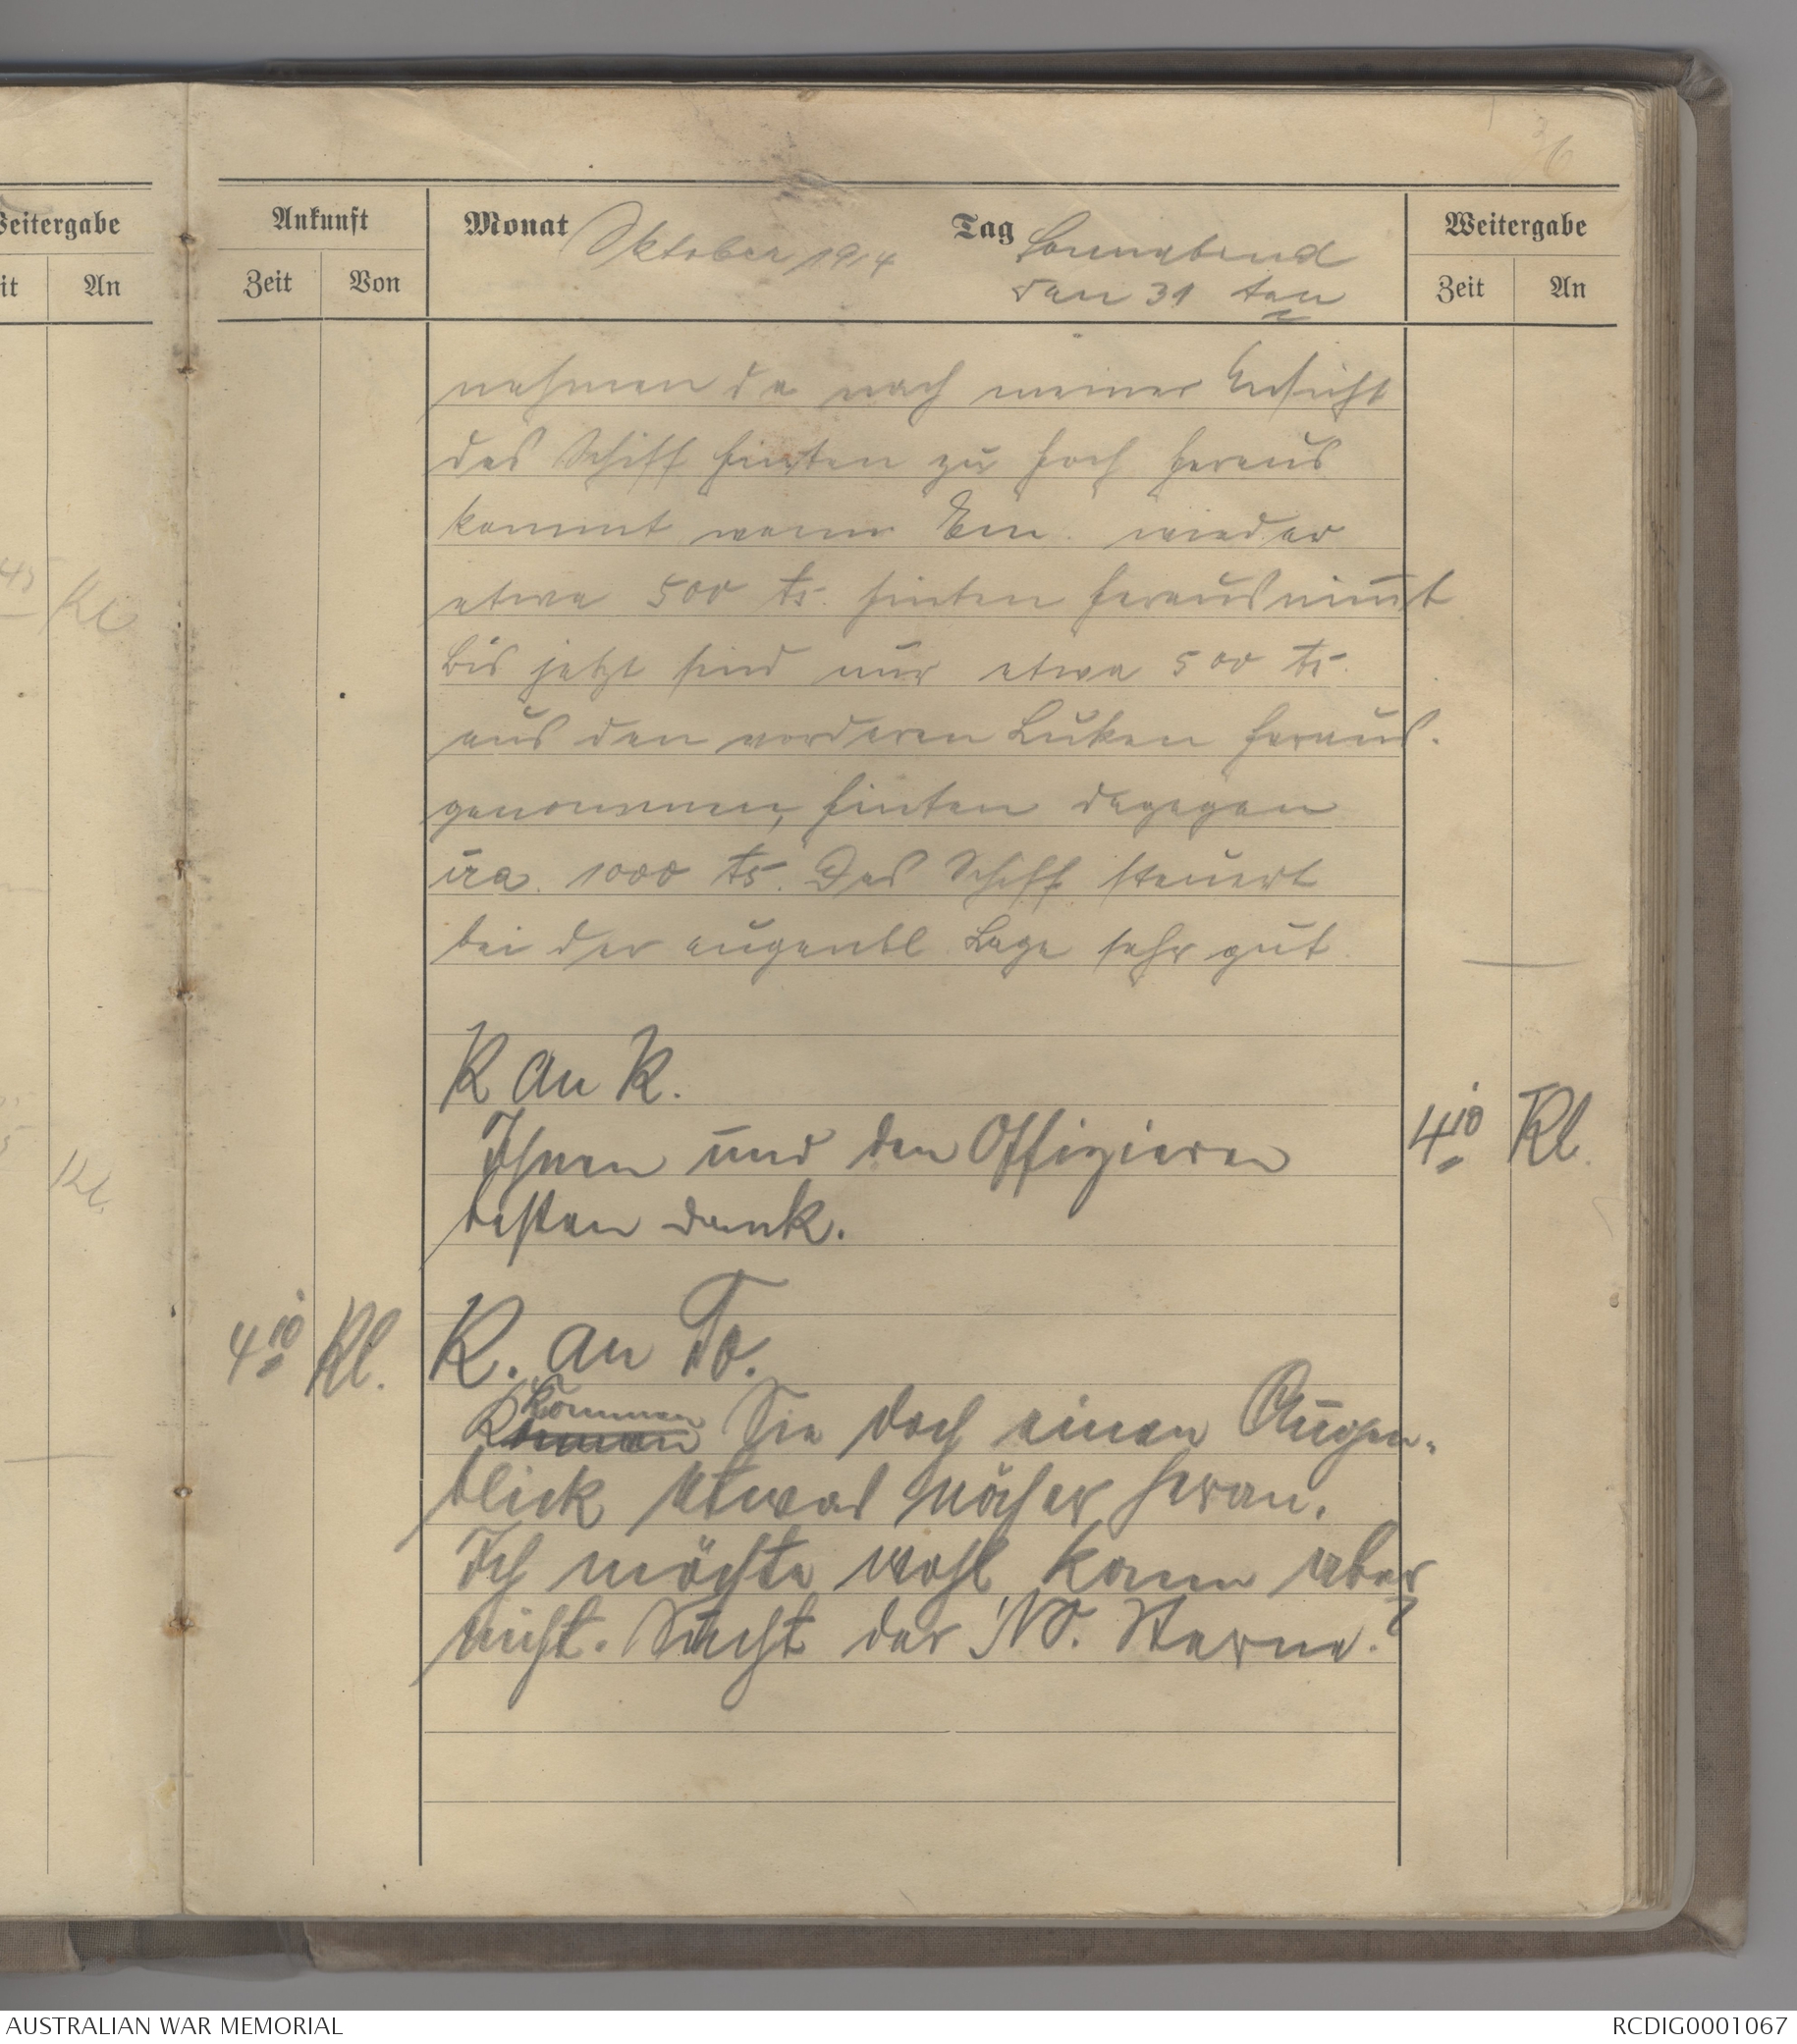 36
Weitergabe
it
An
45
Kl
Kl.
Ankunft
Zeit
Von
Monat Oktober 1914
Tag Sonnabend
den 31 ten
Weitergabe
Zeit
An
nehmen da nach meiner Ansicht
das Schiff hinten zu hoch heraus
kommt wenn Em. wieder
etwa 500 ts. hinten herausnim̄t
Bis jetzt sind nur etwa 500 ts.
aus den vorderen Luken heraus-
genommen, hinten dagegen
cra. 1000 ts. Das Schiff steuert
bei der augenbl Lage sehr gut
K an K.
Ihnen und den Offizieren
besten dank.
4 10
Kl.
4 10
Kl.
K. an To.
Kommen
Sie doch einen Augen-
blick etwas näher heran.
Ich möchte wohl kann aber
nicht. Sucht der NO. Sterne?
AUSTRALIAN WAR MEMORIAL
RCDIG0001067